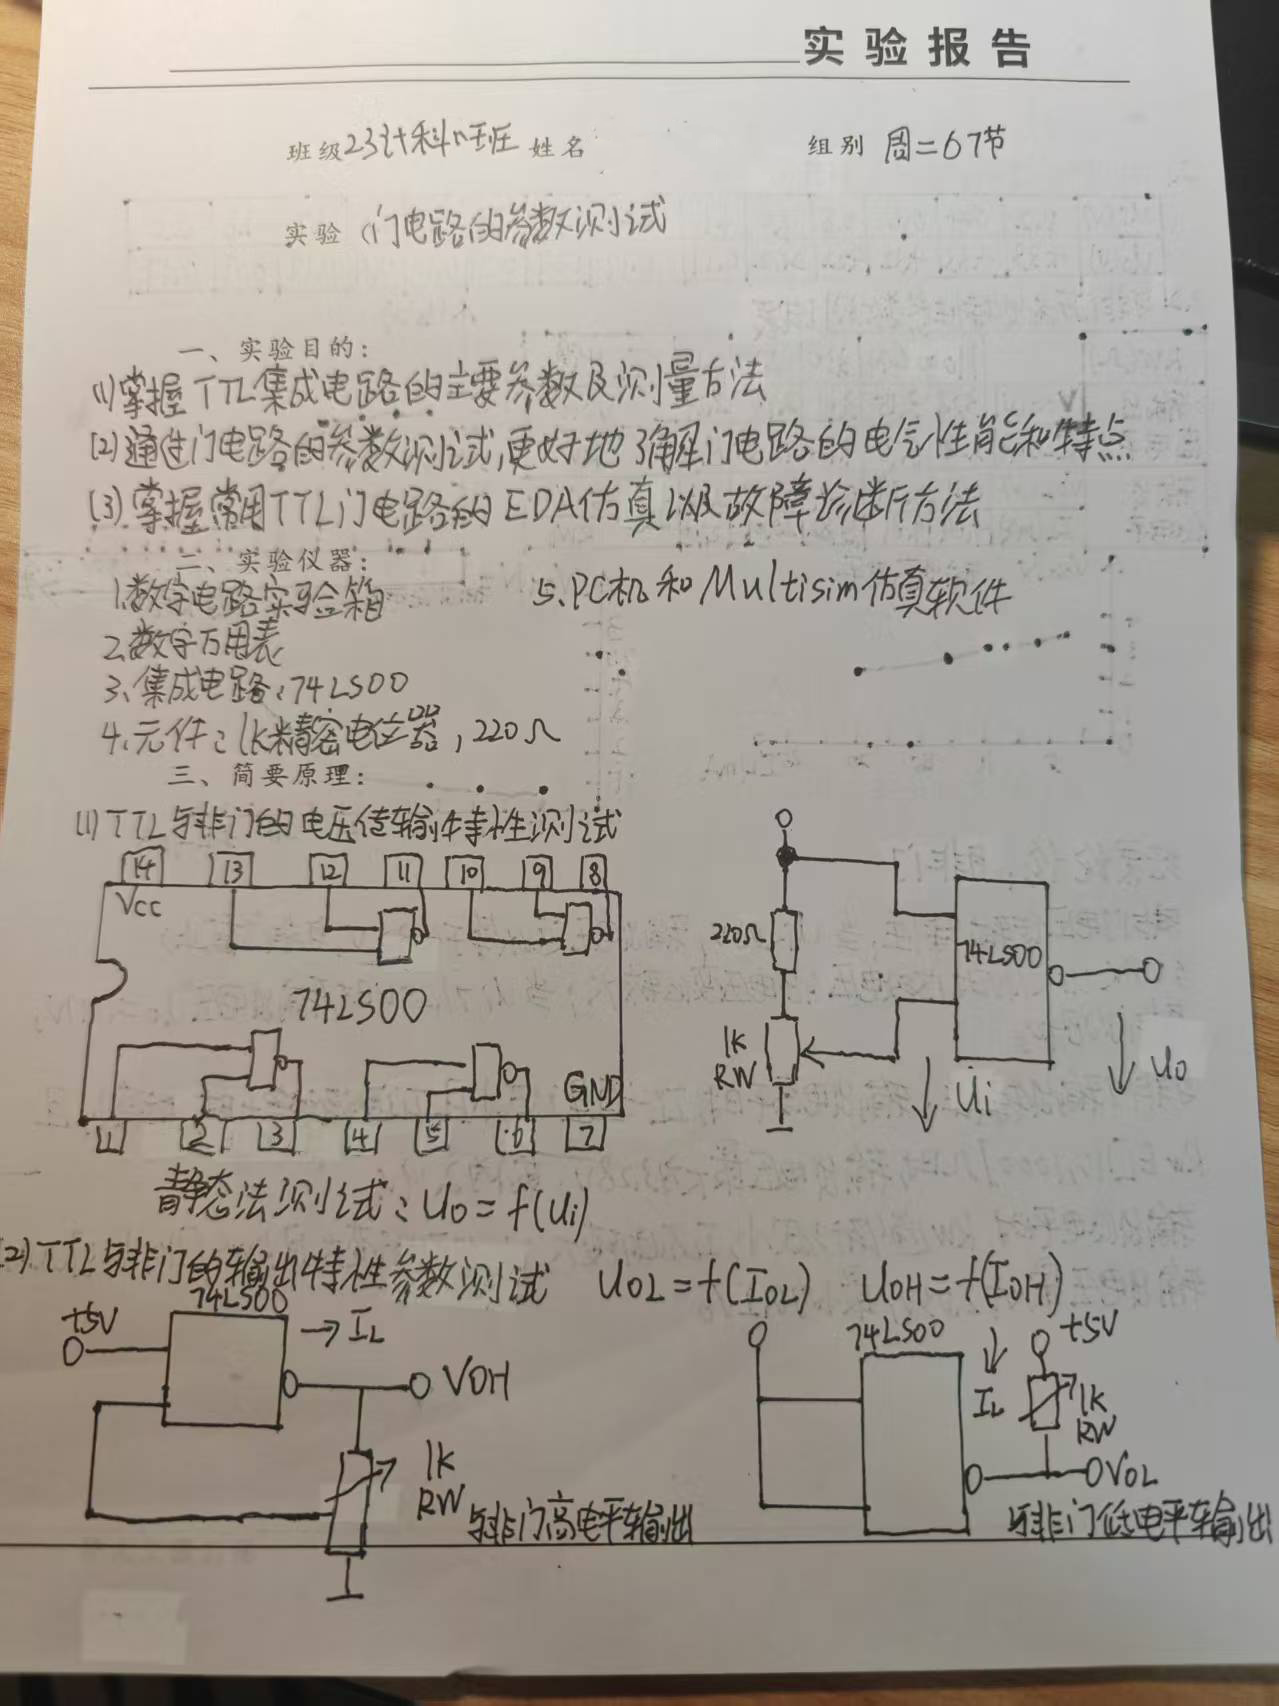 实验报告
班级23计科n班 姓名 组别 周二67节
实验 门电路的参数测试
一、实验目的：
(1)掌握TTL集成电路的主要参数及测量方法
(2)通过门电路的参数测试,更好地了解门电路的电气性能和特点
(3)掌握常用TTL门电路的EDA仿真以及故障诊断方法
二、实验仪器：
1.数字电路实验箱
5.PC机和Multisim仿真软件
2.数字万用表
3.集成电路:74LS00
4.元件:1K精密电位器,220Ω
三、简要原理：
(1)TTL与非门的电压传输特性测试
14 13 12 11 10 9 8
Vcc
74LS00
GND
1 2 3 4 5 6 7
220Ω
74LS00
1K
RW
Ui
Uo
静态法测试:Uo=f(Ui)
(2)TTL与非门的输出特性参数测试 UOL=f(IOL) UOH=f(IOH)
74LS00
+5V
IL
VOH
1K
RW
与非门高电平输出
74LS00
+5V
IL
1K
RW
VOL
与非门低电平输出